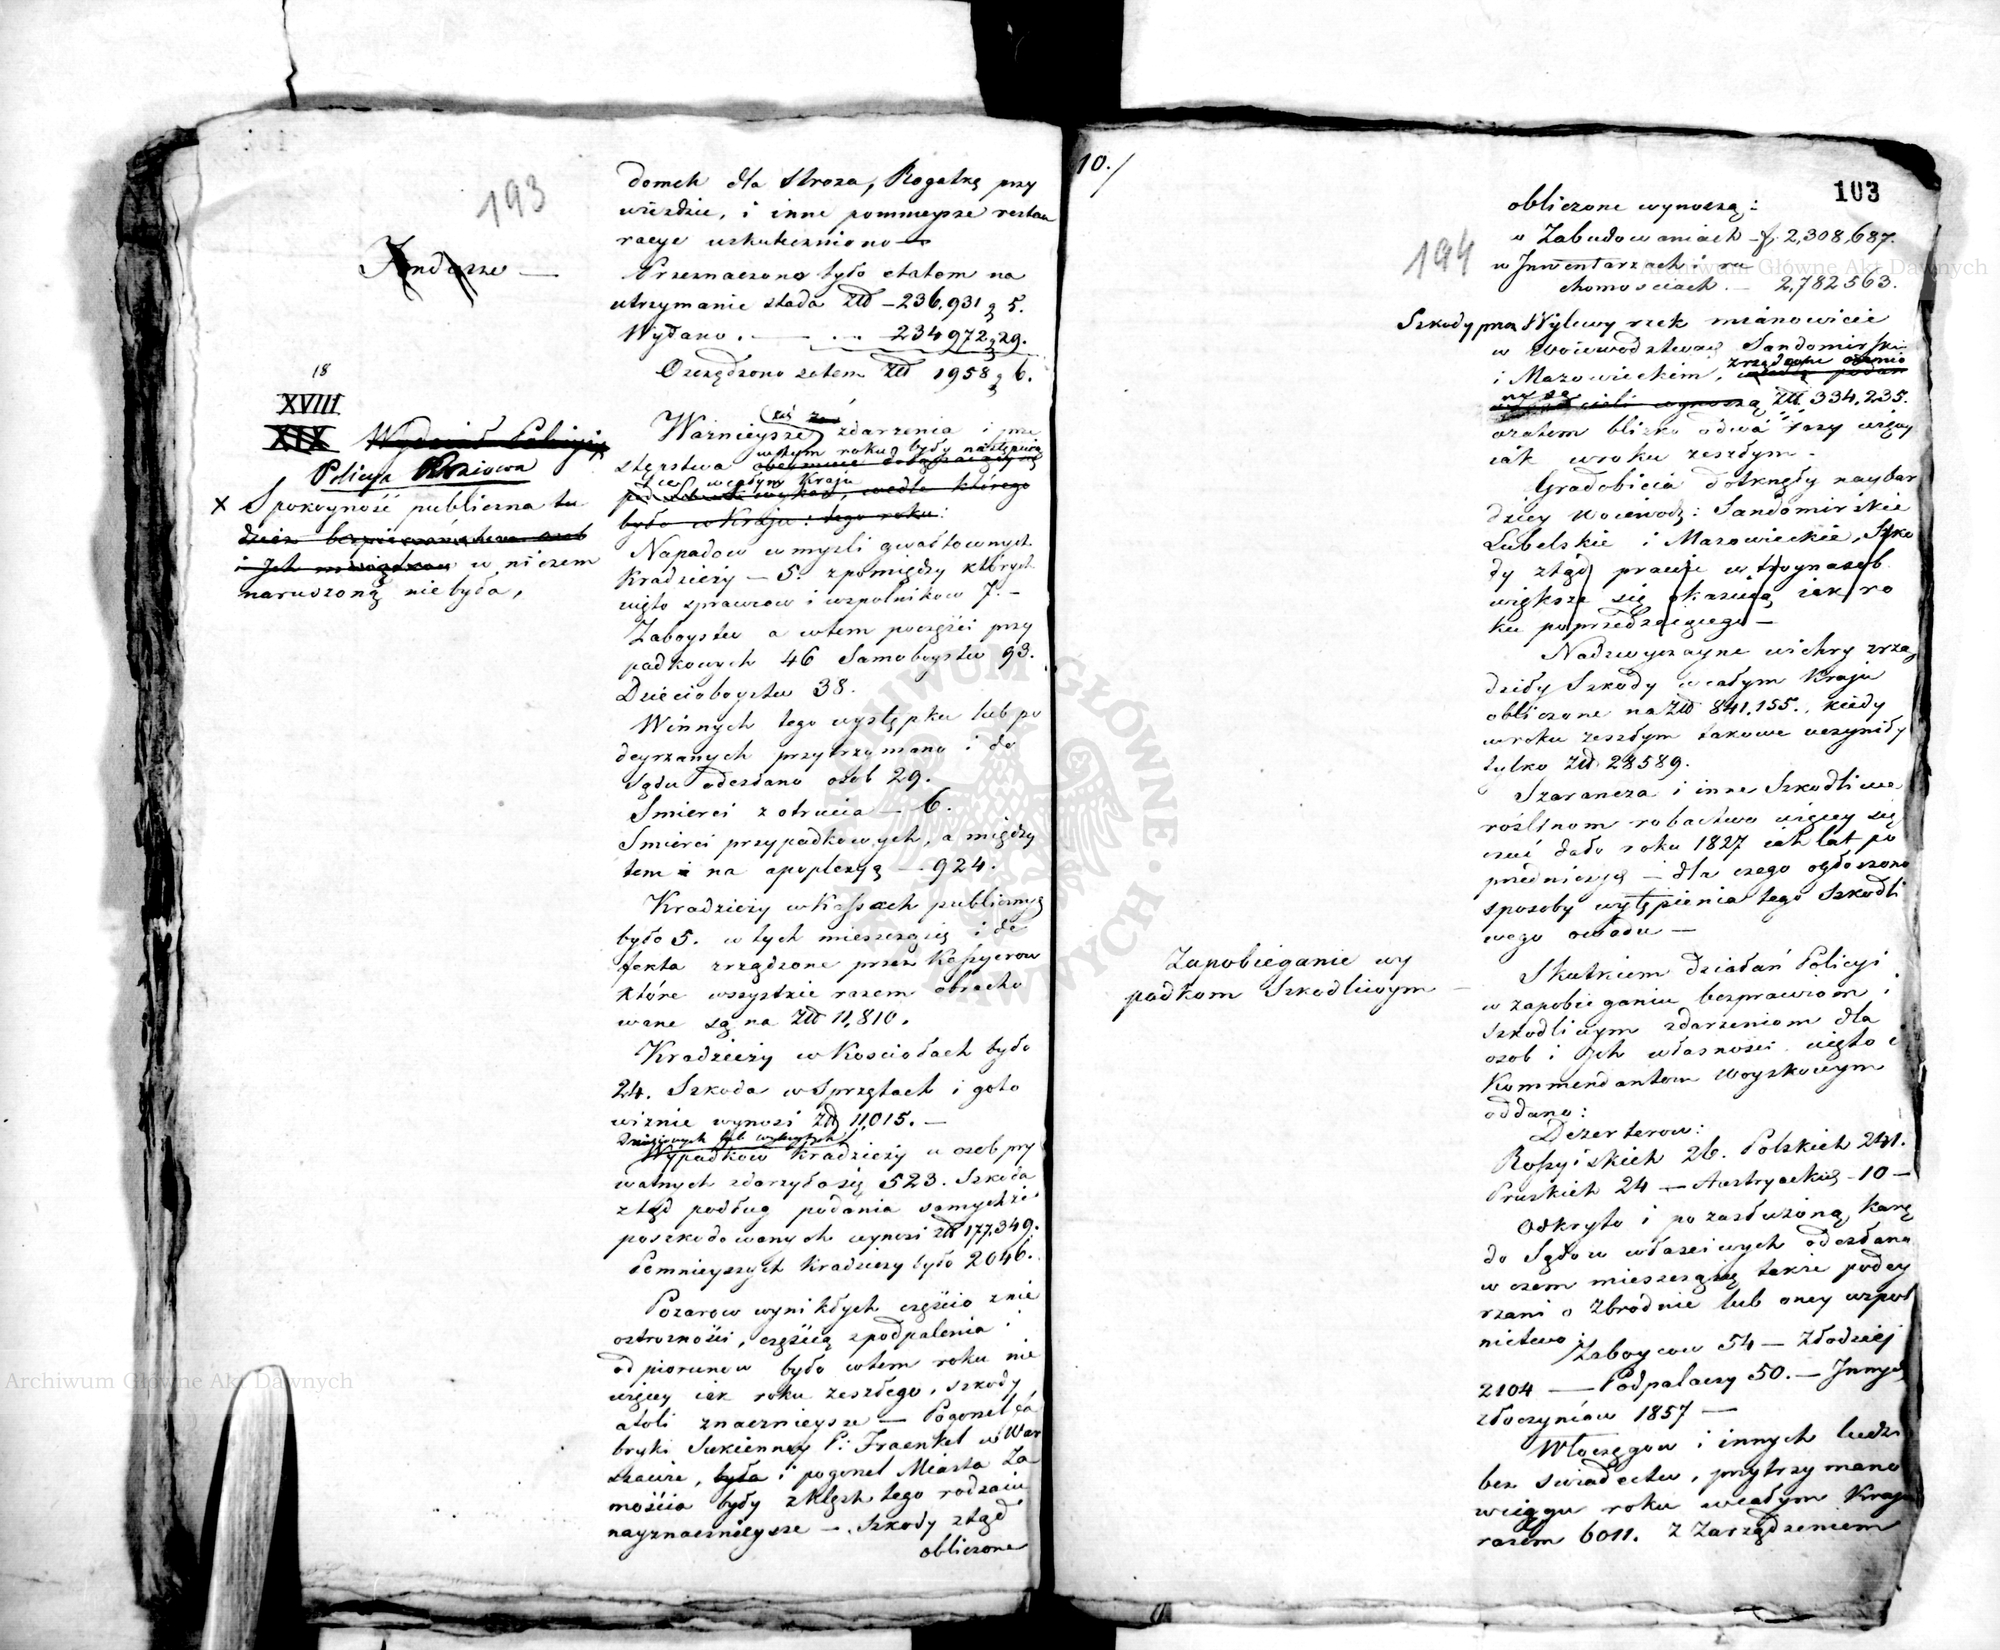 193
domek dla stroza, Rogatkę przy
wieździe, i inne pommeysze restau
racye uskuteczniono —
Fundusze —
Przeznaczono było etatem na
utrzymanie stada Złł — 236,931 g 5.
Wydano . — . . . 234972 g 29.
Oszczędzono zatem Złł 1958 g 6.
18
XVIII
XIX Wydział Policyi
Policya
x Spokoyność publiczna tu
dzież bezpieczeństwo osob
i Ich maiątkow w niczem
naruszoną niebyła,
Ważnieysze zdarzenia i prze
w tym roku były następuią
stępstwa
w całym Kraju
wykaz, wedle którego
było w Kraju: tego roku:
Napadow w myśli gwałtownych
Kradzieży — 5. z pomiędzy których
uięto sprawcow i wspolnikow 7. —
Zaboystw a wtem poczęści przy
padkowych 46 Samoboystw 93.
Dziecioboystw 38.
Winnych tego występku lub po
deyrzanych przytrzymano i do
Sądu odesłano osob 29.
Smierci z otrucia — 6.
Smierci przypadkowych, a między
temi na apoplexyą — 924.
Kradzieży w Kassach publicznyc͠h
było 5. w tych mieszczą się i de
fekta zrządzone przez Kassyerow
które wszystkie razem obracho
wane są na Złł 11,810.
Kradzieży w Kosciołach było
24. Szkoda w Sprzętach i goto
wiznie wynosi Złł 11,015. —
Wypadkow Kradzieży u osob pry
watnych zdarzyło się 523. Szkoda
ztąd podług podania samychże
poszkodowanych wynosi złł 177,349.
Pomnieyszych kradzieży było 2046.
Pozarow wynikłych częścio z nie
ostrozności, częścią z podpalenia i
od piorunow było wtem roku nie
więcey iak roku zeszłego, szkody
atoli znacznieysze — Pogorzel fa
bryki Sukienney P: Fraenkel w War
szawie, była i pogorzel Miasta Za
mościa były z klęsk tego rodzaiu
nayznacznieysze — Szkody ztąd
obliczone
10./
103
194
obliczone wynoszą:
w Zabudowaniach — f. 2,308,687.
w Inwentarzach i ru
chomościach. — 2,782563.
Szkody przez Wylewy rzek mianowicie
w Woiewodztwach Sandomirskim
i Mazowieckim,
Złł. 334,235.
a zatem blizko o dwa razy więcey
iak w roku zeszłym.
Gradobicia dotknęły naybar
dziey Woiewodz: Sandomirskie
Lubelskie i Mazowieckie, Szko
dy ztąd prawie w troynasob
większe się okazuią iak ro
ku poprzedzaiącego —
Nadzwyczayne wichry zrzą
dziły Szkody w całym Kraju
obliczone na Złł 841,155., kiedy
w roku zeszłym takowe uczyniły
tylko Złł 28589.
Szarancza i inne Szkodliwe
roślinom robactwo więcey się
czuć dało roku 1827 iak lat po
przedniczych — dla czego ogłoszono
sposoby wytępienia tego Szkodli
wego owadu —
Zapobieganie wy
padkom Szkodliwym —
Skutkiem działań Policyi
w zapobieganiu bezprawiom i
szkodliwym zdarzeniom dla
osob i Ich własności. uięto i
Kommendantom Woyskowym
oddano:
Dezerterow:
Rossyiskich 26. Polskich 241.
Pruskich 24 — Austryackich — 10 —
Odkryto i po zasłużoną karę
do Sądow właściwych odesłano
w czem mieszczą się także podey
rzani o Zbrodnie lub oney wspol
nictwo.
Zaboycow 54 — Złodziej
2104 — Podpalaczy 50. — Innych
złoczyńcow 1857 —
Włóczęgow i innych ludzi
bez swiadectw, przytrzymano
w ciągu roku w całym Kraju
razem 6011. z Zarządzeniem